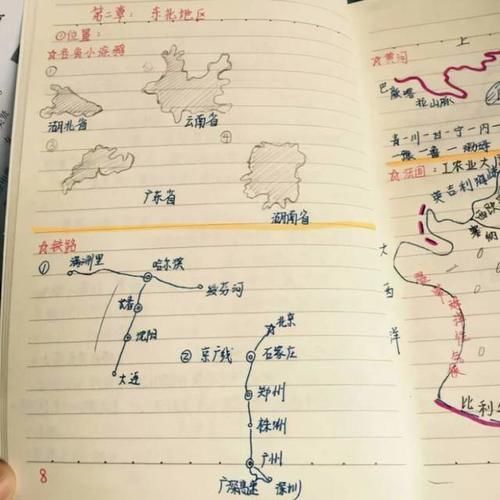 第二章：东北地区
①位置：
☆各省小涂鸦
①
湖北省
②
云南省
③
广东省
④
湖南省
☆铁路
①
满洲里
哈尔滨
绥芬河
长春
沈阳
大连
② 京广线
☆北京
石家庄
郑州
株洲
广州
广深高速
深圳
8
上
☆黄河
巴颜喀
拉山脉
青一川一甘一宁一内一
一豫一鲁一渤海
☆法国：工农业大
英吉利海峡
大
西
洋
比利